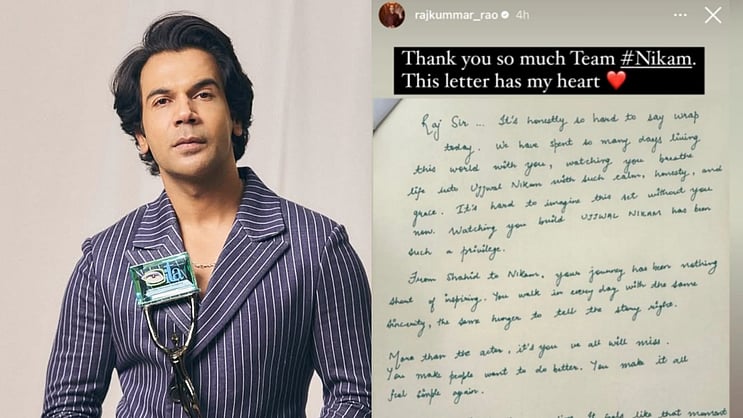 rajkummar_rao 4h
Thank you so much Team #Nikam.
This letter has my heart ❤️
Raj Sir ... It's honestly so hard to say wrap
today. We have spent so many days living
this world with you, watching you breathe
life into Ujjwal Nikam with such calm, honesty, and
grace. It's hard to imagine this set without you
now. Watching you build UJJWAL NIKAM has been
such a privilege.
From Shahid to Nikam, your journey has been nothing
short of inspiring. You walk in every day with the same
sincerity, the same hunger to tell the story right.
More than the actor, it's you we all will miss.
You make people want to do better. You make it all
feel simple again.
like that moment